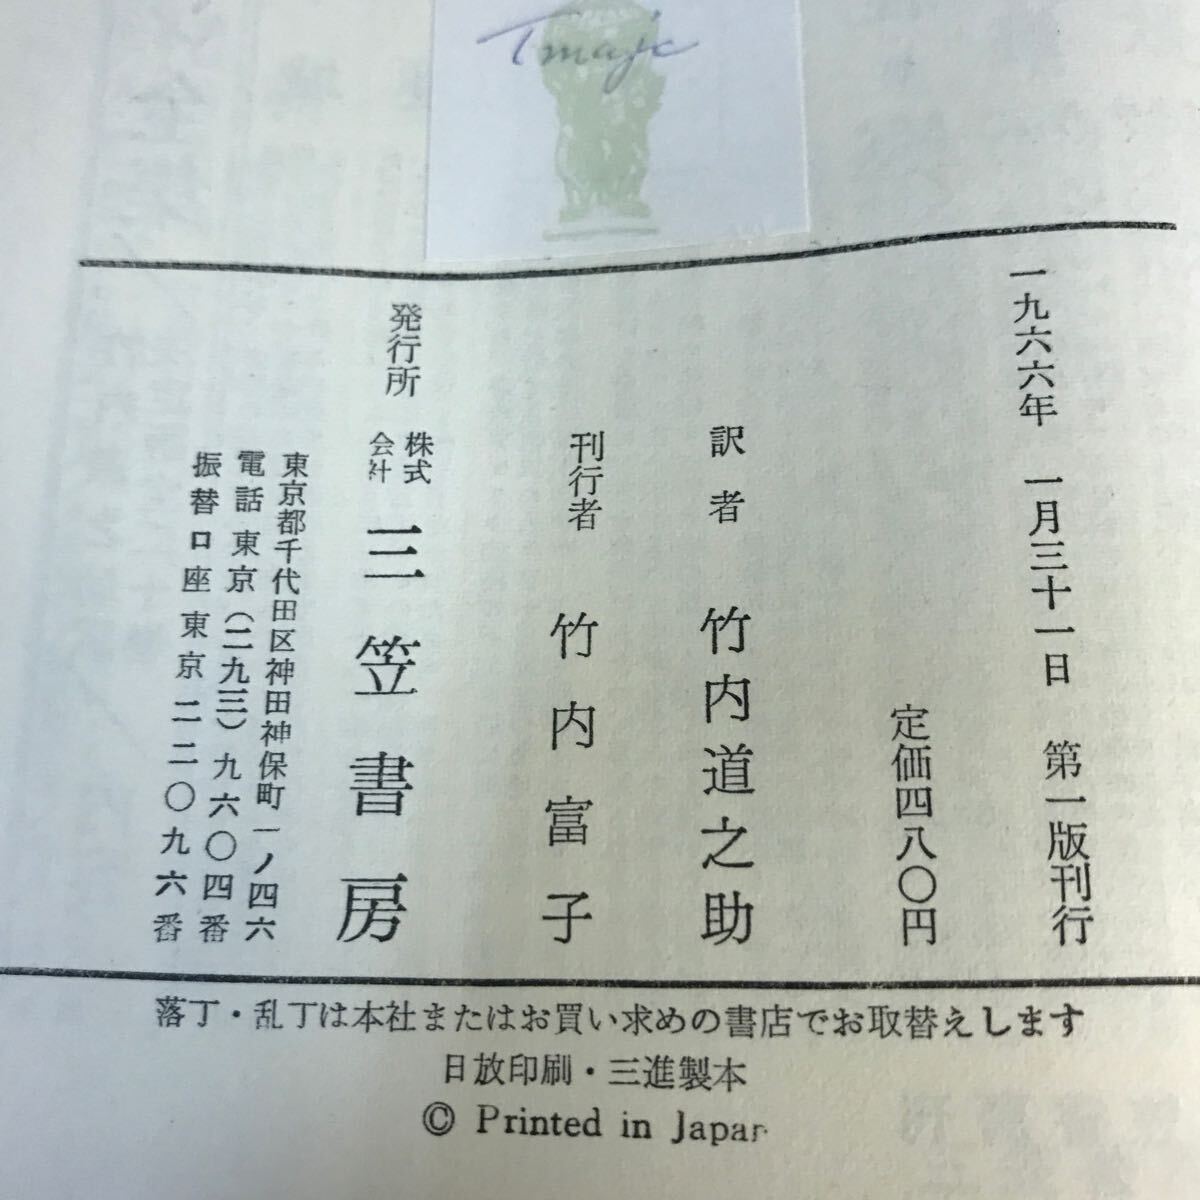 Tmaje
一九六六年 一月三十一日 第一版刊行
定価四八〇円
訳者 竹内道之助
刊行者 竹内富子
発行所 株式会社 三笠書房
東京都千代田区神田神保町一ノ四六
電話東京(二九三)九六〇四番
振替口座東京二二〇九六番
落丁・乱丁は本社またはお買い求めの書店でお取替えします
日放印刷・三進製本
© Printed in Japan